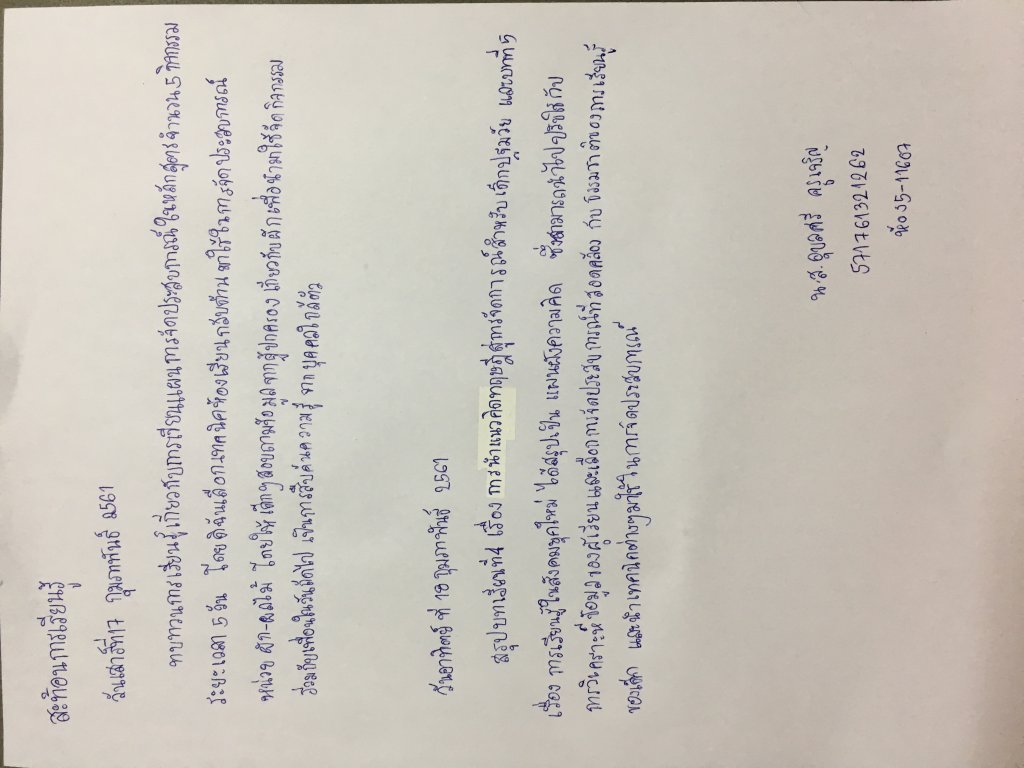 สะท้อนการเรียนรู้
วันเสาร์ที่ 17 กุมภาพันธ์ 2561
ทบทวนการเรียนรู้เกี่ยวกับการเขียนแผนการจัดประสบการณ์ในหลักสูตรจำนวน 5 กิจกรรม
ระยะเวลา 5 วัน โดยดิฉันเลือกเทคนิคห้องเรียนกลับด้านมาใช้ในการจัดประสบการณ์
หน่วย ผัก-ผลไม้ โดยให้เด็กๆสอบถามข้อมูลจากผู้ปกครองเกี่ยวกับผักเพื่อนำมาใช้จัดกิจกรรม
ร่วมกับเพื่อนในวันถัดไป เป็นการสืบค้นความรู้ จากบุคคลใกล้ตัว
วันอาทิตย์ ที่ 18 กุมภาพันธ์ 2561
สรุปบทเรียนที่ 4 เรื่อง การนำแนวคิดทฤษฎีสู่การจัดการณ์สำหรับเด็กปฐมวัย และบทที่ 5
เรื่อง การเรียนรู้ในสังคมยุคใหม่ ได้สรุปเป็น แผนผังความคิด ซึ่งสามารถนำไปปรับใช้กับ
การวิเคราะห์ข้อมูลของผู้เรียนและเลือกการจัดประสบการณ์ที่สอดคล้อง กับ ธรรมชาติของการเรียนรู้
ของเด็ก และนำเทคนิคต่างๆมาใช้ในการจัดประสบการณ์
น.ส. อุบลศรี ครูเจริญ
571761321262
ห้อง 5-11607